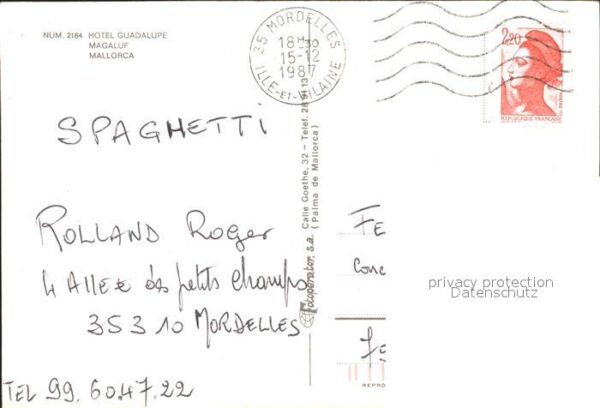 NUM. 2164 HOTEL GUADALUPE
MAGALUF
MALLORCA
35 MORDELLES
18H30
15-12
1987
ILLE-ET-VILAINE
2,20
REPUBLIQUE FRANÇAISE
SPAGHETTI
ROLLAND Roger
4 Allée des petits champs
35310 MORDELLES
TEL 99.60.47.22
Calle Goethe, 32 - Telef. 28 91 13
(Palma de Mallorca)
FE
Conc
privacy protection
Datenschutz
REPRO